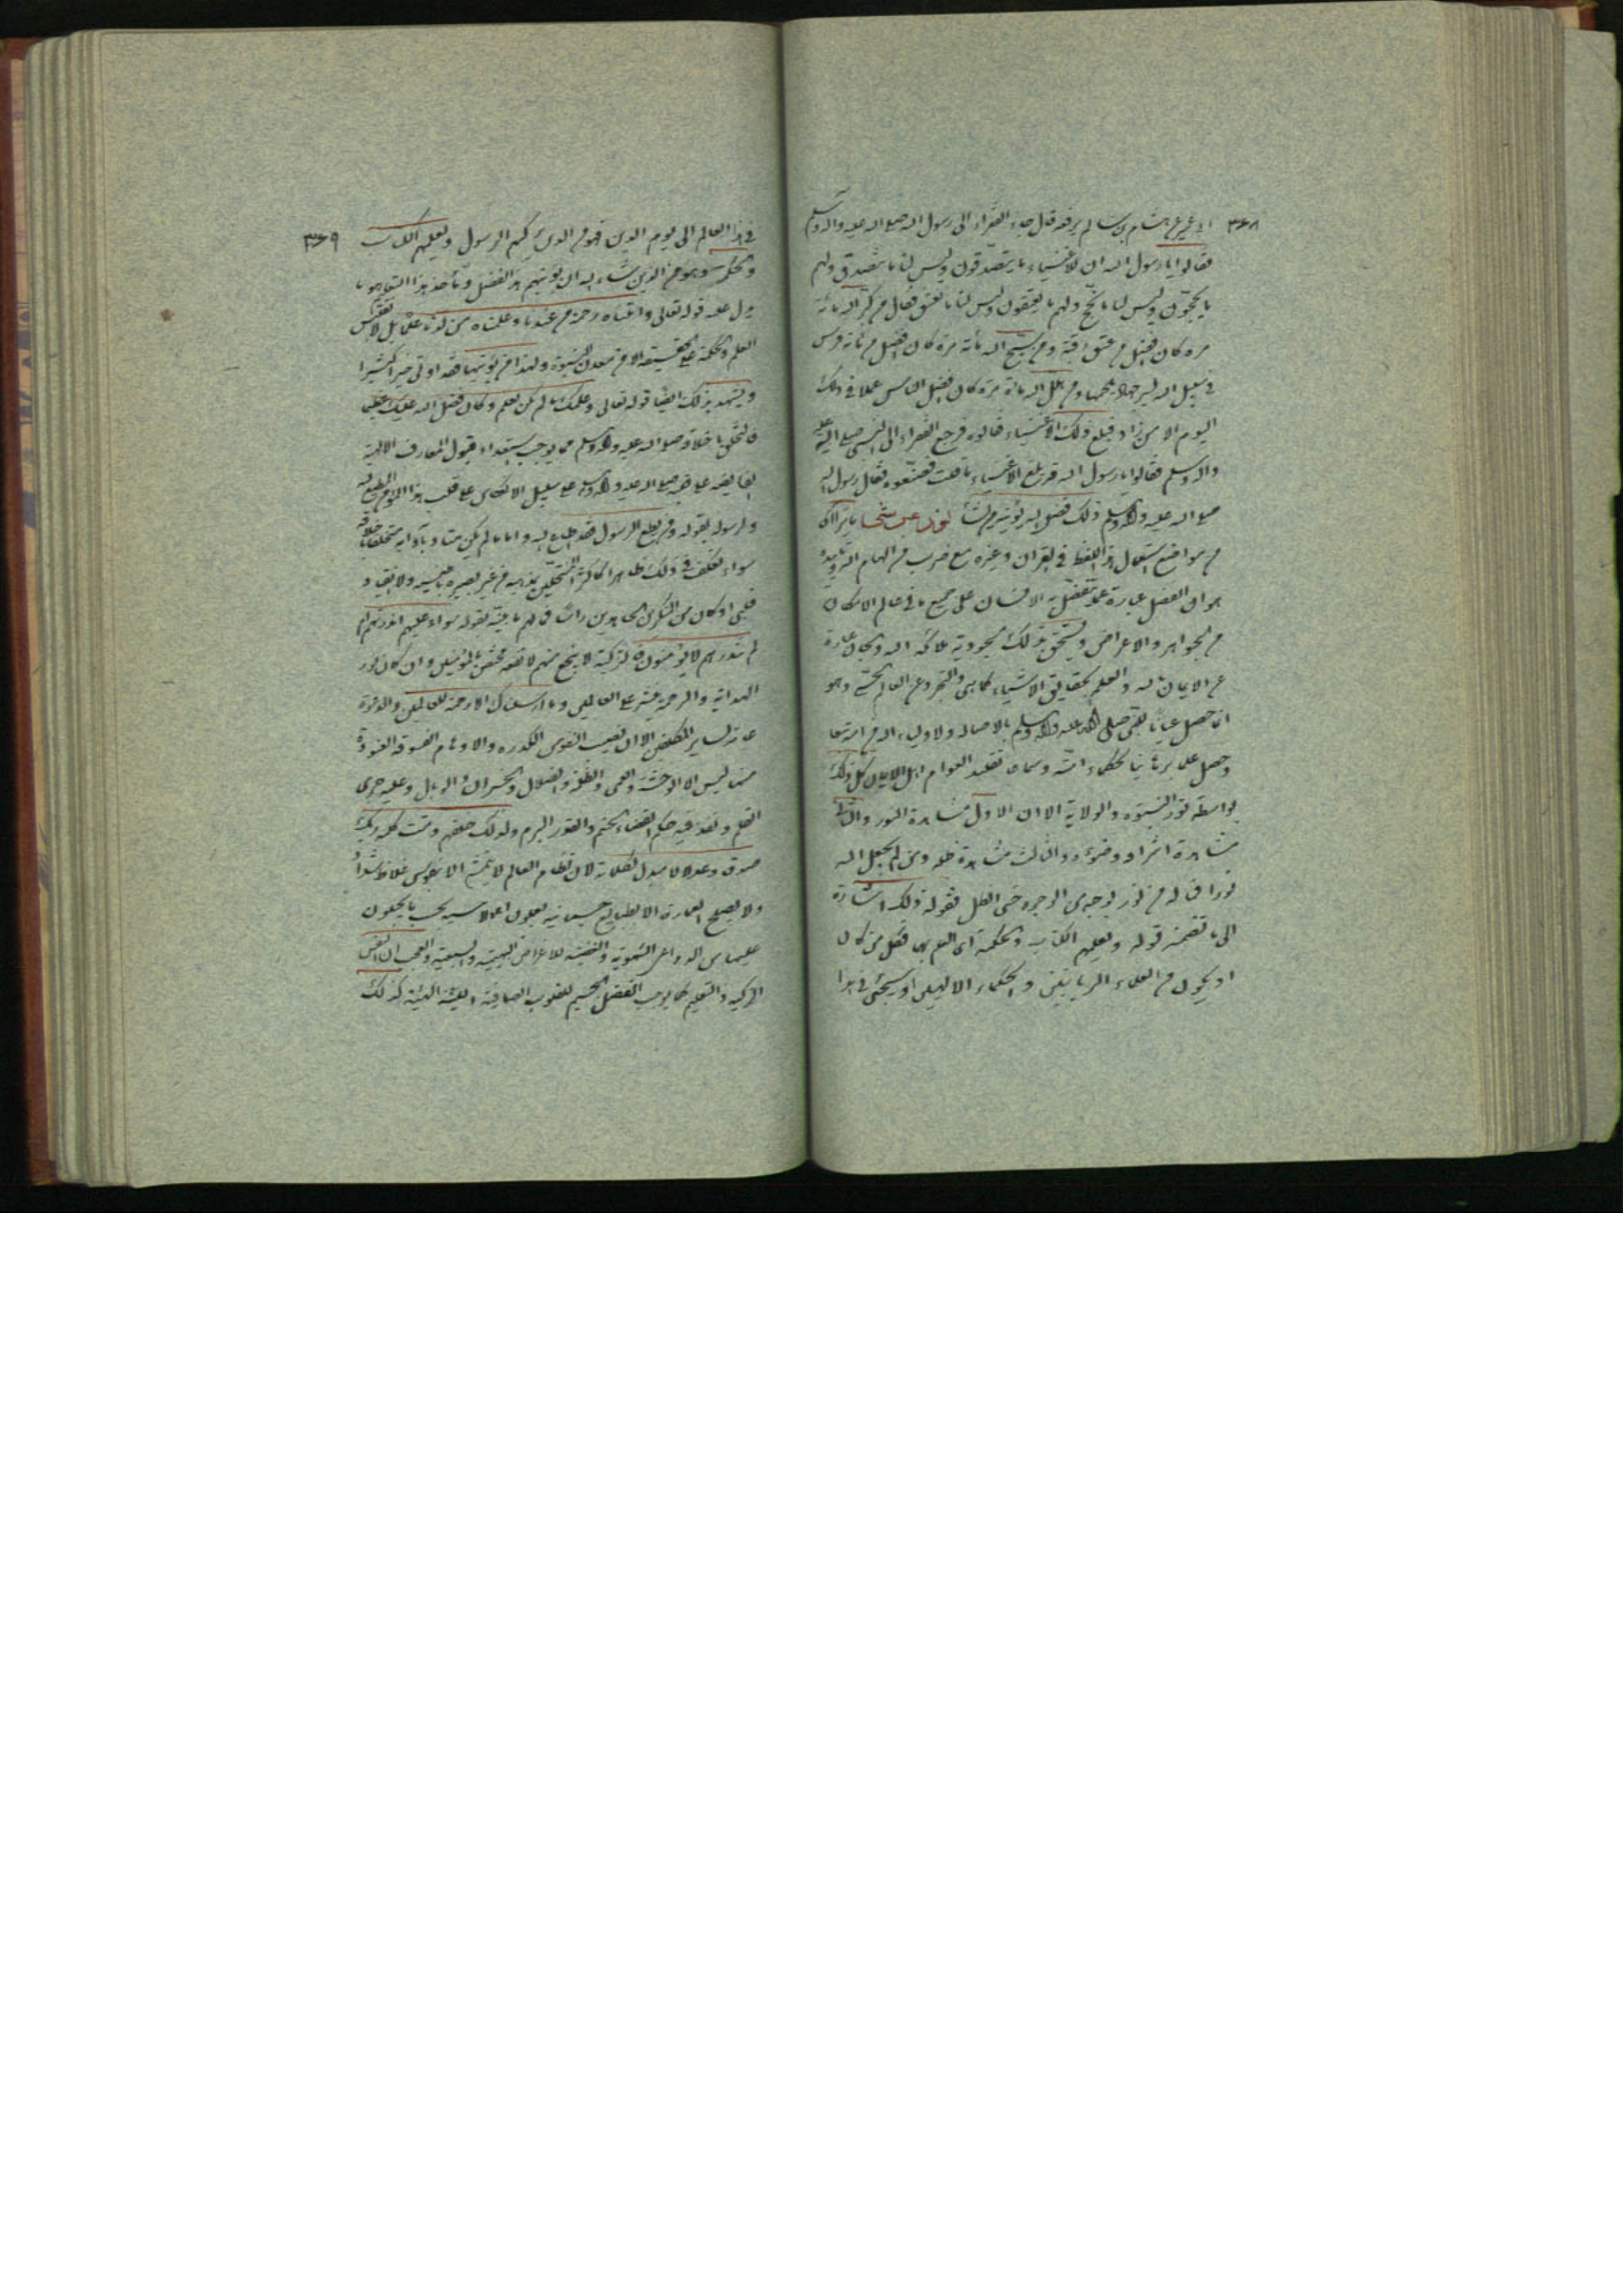 ٣۶٨
ابى عمير عن هشام بن سالم يرفعه قال جاء الفقراء الى رسول الله صلى الله عليه وآله وسلم
فقالوا يا رسول الله ان للاغنياء ما يتصدقون وليس لنا ما نتصدق ولهم
ما يحجون وليس لنا ما نحج ولهم ما يعتقون وليس لنا ما نعتق فقال من كبر الله مائة
مرة كان افضل من عتق رقبة ومن سبح الله مائة مرة كان افضل من مائة فرس
فى سبيل الله بسرجها ولجمها ومن هلل الله مائة مرة كان افضل الناس عملا فى ذلك
اليوم الا من زاد فبلغ ذلك الاغنياء فقالوه فرجع الفقراء الى النبى صلى الله عليه
وآله وسلم فقالوا يا رسول الله قد بلغ الاغنياء ما قلت فصنعوه فقال رسول الله
صلى الله عليه وآله وسلم ذلك فضل الله يؤتيه من يشاء
من مواضع استعمال هذا اللفظ فى القران وغيره مع ضرب من الهام الله وتاييده
هو ان الفضل عبارة عما يتفضل به الانسان على جميع ما فى عالم الامكان
من الجواهر والاعراض ويستحق بذلك مسجودية ملائكة الله
عن الايمان بالله والعلم بحقايق الاشياء كما هى والتجرد عن العالم الحسى وهو
انما حصل عيانا للنبى صلى الله عليه وآله وسلم بالاصالة ولاولياء الله من امته تبعا
وحصل علما برهانيا لحكماء امته وسماعا وتقليدا لعوام اهل الايمان كل ذلك
بواسطة نور النبوة والولاية الا ان الاول مشاهدة النور والثانى
مشاهدة اشراقه وضوءه والثالث مشاهدة ظله ومن لم يجعل الله له
نورا فما له من نور بوجه من الوجوه حتى الظل فقوله ذلك اشارة
الى ما تضمنه قوله ويعلمهم الكتاب والحكمة اى العلم بها فكل من كان
او يكون من العلماء الربانيين والحكماء الالهيين او سيجئ فى هذا
٣۶٩
فى هذا العالم الى يوم الدين فهو من الذين يزكيهم الرسول ويعلمهم الكتاب
والحكمة وهو من الذين شاء الله ان يؤتيهم هذا الفضل
دل عليه قوله تعالى وآتيناه رحمة من عندنا وعلمناه من لدنا علما بل لا يقتبس
العلم والحكمة على الحقيقة الا من معدن النبوة ولهذا من يؤتيها فقد اوتى خيرا كثيرا
ويشهد بذلك ايضا قوله تعالى وعلمك ما لم تكن تعلم وكان فضل الله عليك عظيما
فالتخلق باخلاقه صلى الله عليه وآله وسلم مما يوجب استعداد قبول المعارف الالهية
الفايضة عليه صلى الله عليه وآله وسلم على سبيل الانعكاس على قلب هذا المؤمن المطيع لله
ولرسوله لقوله ومن يطع الرسول فقد اطاع الله واما ما لم يكن متادبا بآدابه متخلقا باخلاقه
سواء تكلف فى ذلك ظاهرا
قلبى او كان من المنكرين الجاحدين راسا فما لهم ما جئته لقوله سواء عليهم ءانذرتهم ام
لم تنذرهم لا يؤمنون فالتزكية لا ينجع منهم لانه مختص بالمؤمنين وان كان نور
الهداية والرحمة منتشرا على العالمين وما ارسلناك الا رحمة للعالمين والدعوة
عامة لساير المكلفين الا ان نصيب النفوس الكدرة والاوهام
منها ليس الا الوحشة والعمى والظلمة والضلال والخسران والوبال وعليه جرى
القلم ونفذ فيه حكم القضاء الحتم والقدر المبرم ولذلك خلقهم وتمت كلمة ربك
صدقا وعدلا لا مبدل لكلماته لان نظام العالم لا يتمشى الا بنفوس غلاظ شداد
ولا يصلح العمارة الا بطبايع جسمانية يعملون اعمالا سيئة
عليها من الدواعى الشهوية والغضبية للاغراض البهيمية والسبعية والعجب ان نفس
التزكية والتعليم كما يوجب الفضل الجسيم للقلوب الصافية اللينة الهينة كذلك